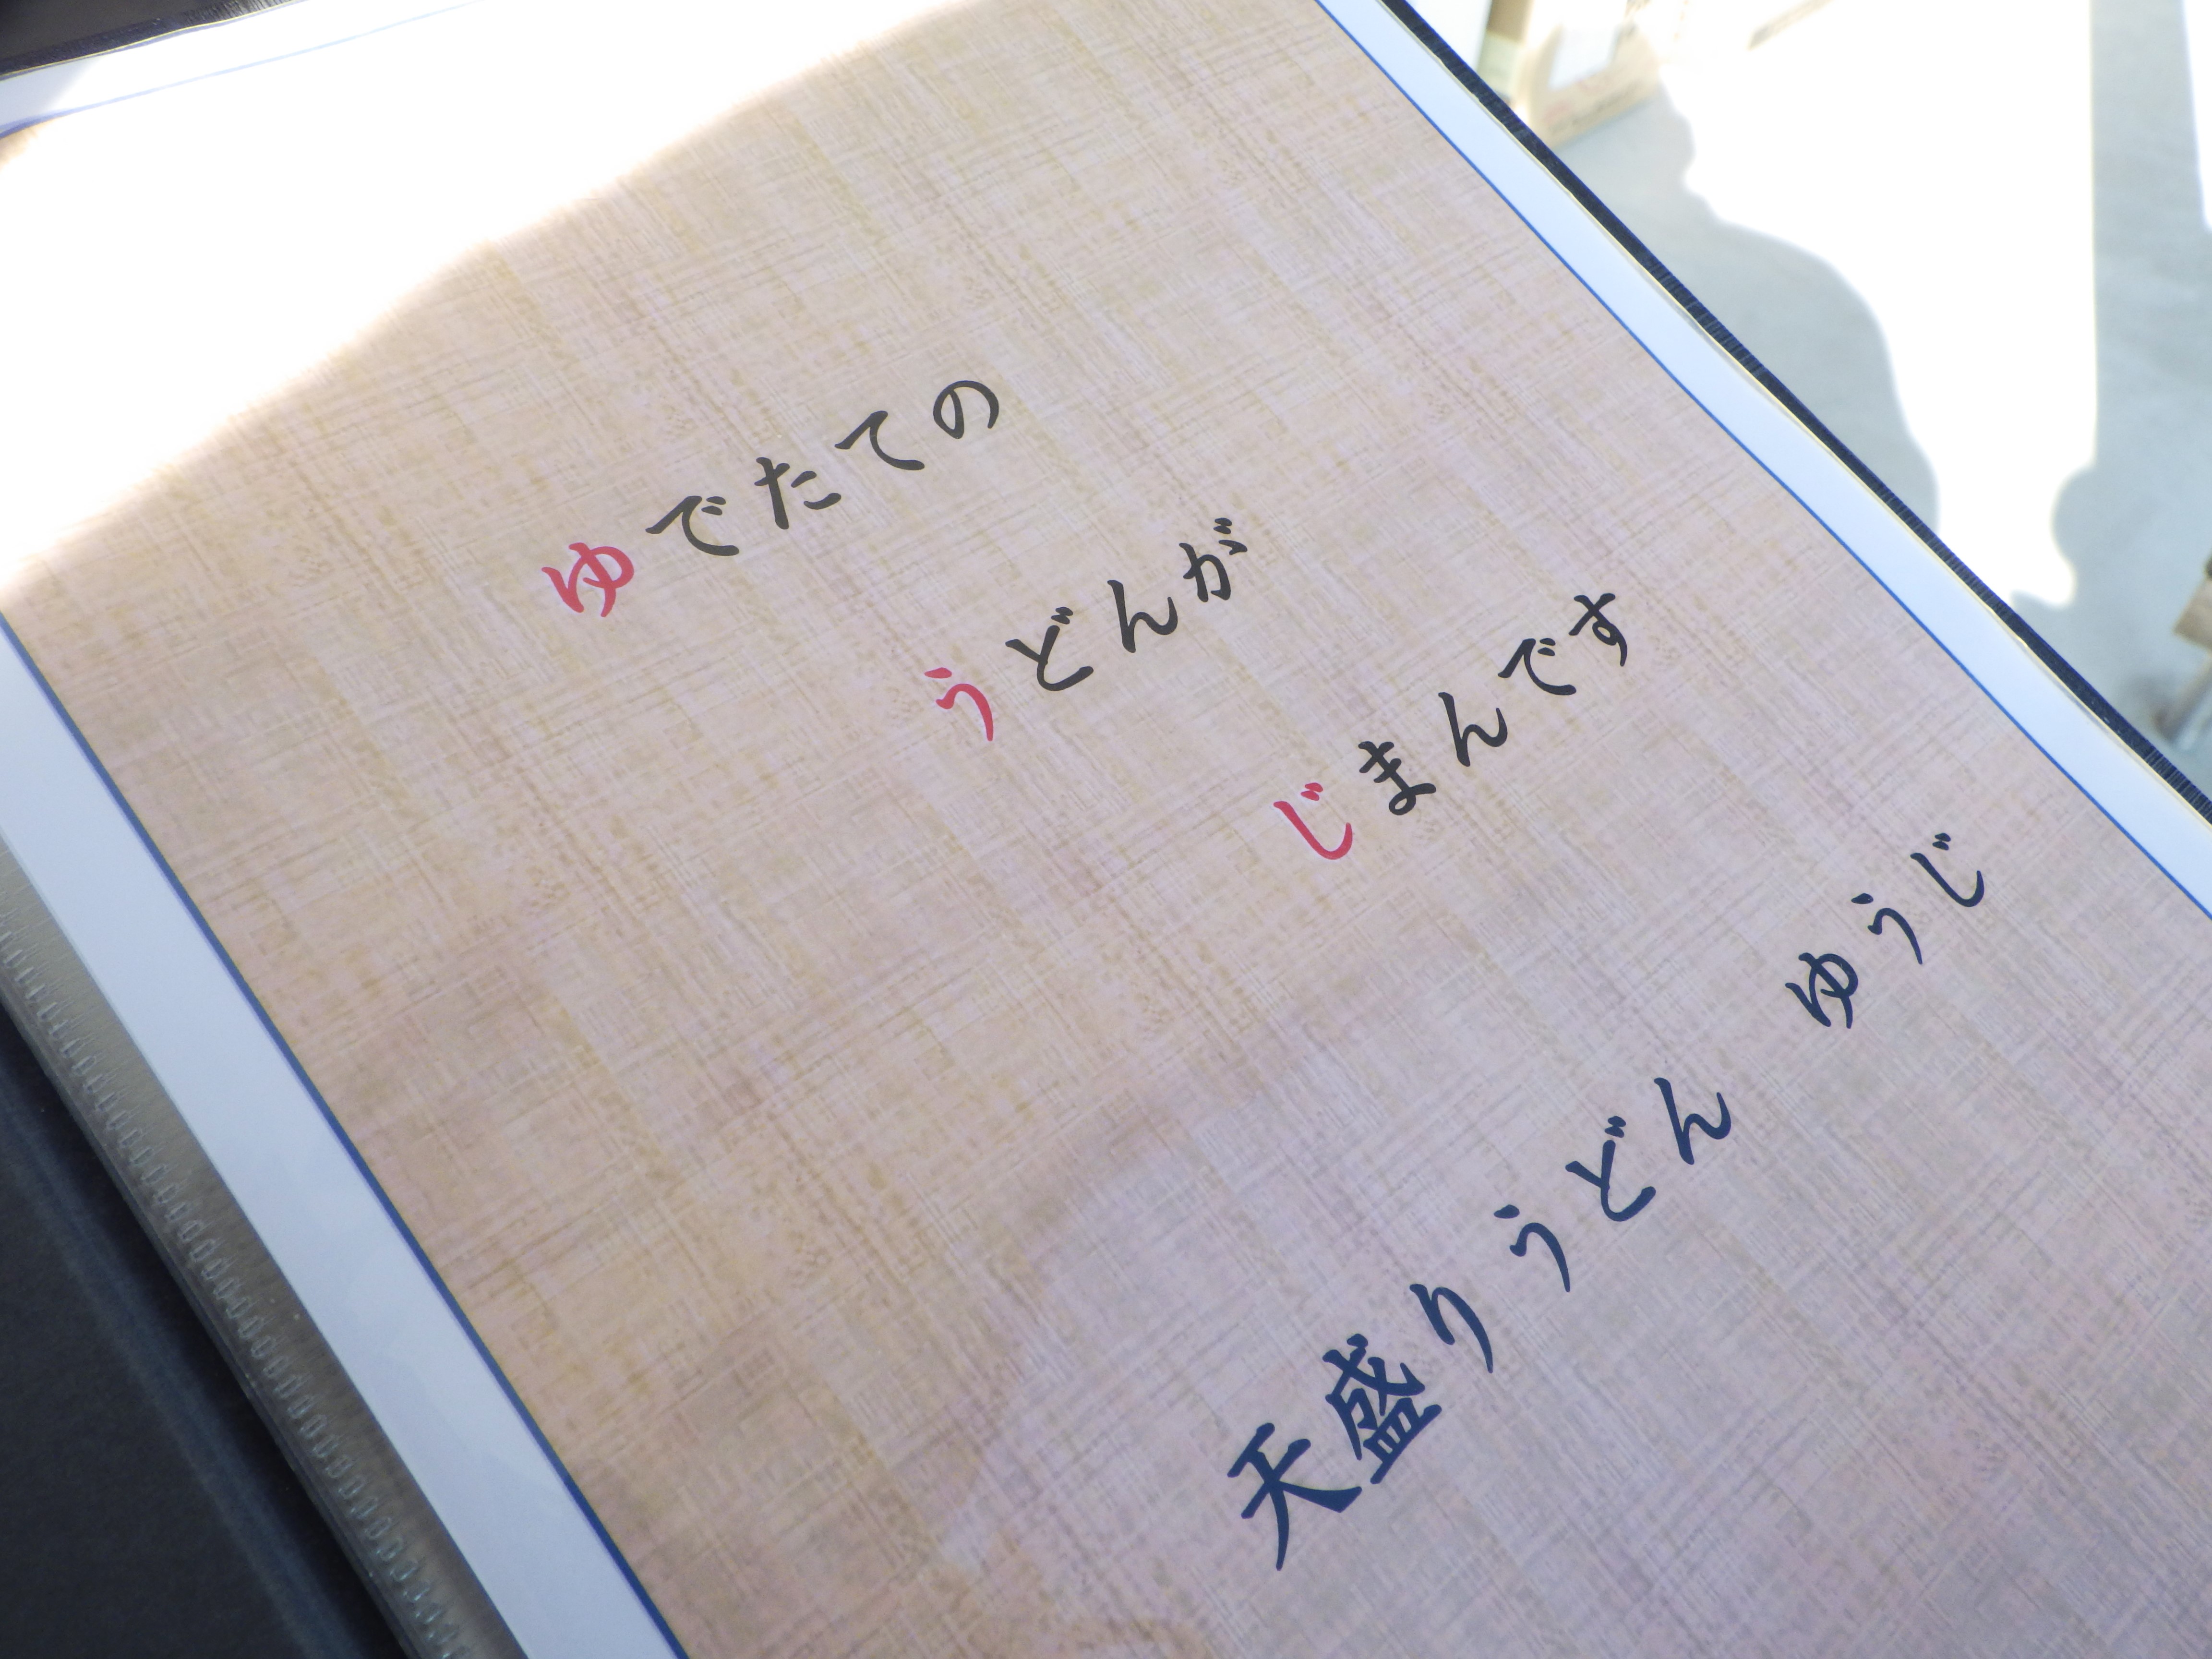 ゆでたての
うどんが
じまんです
天盛りうどん ゆうじ